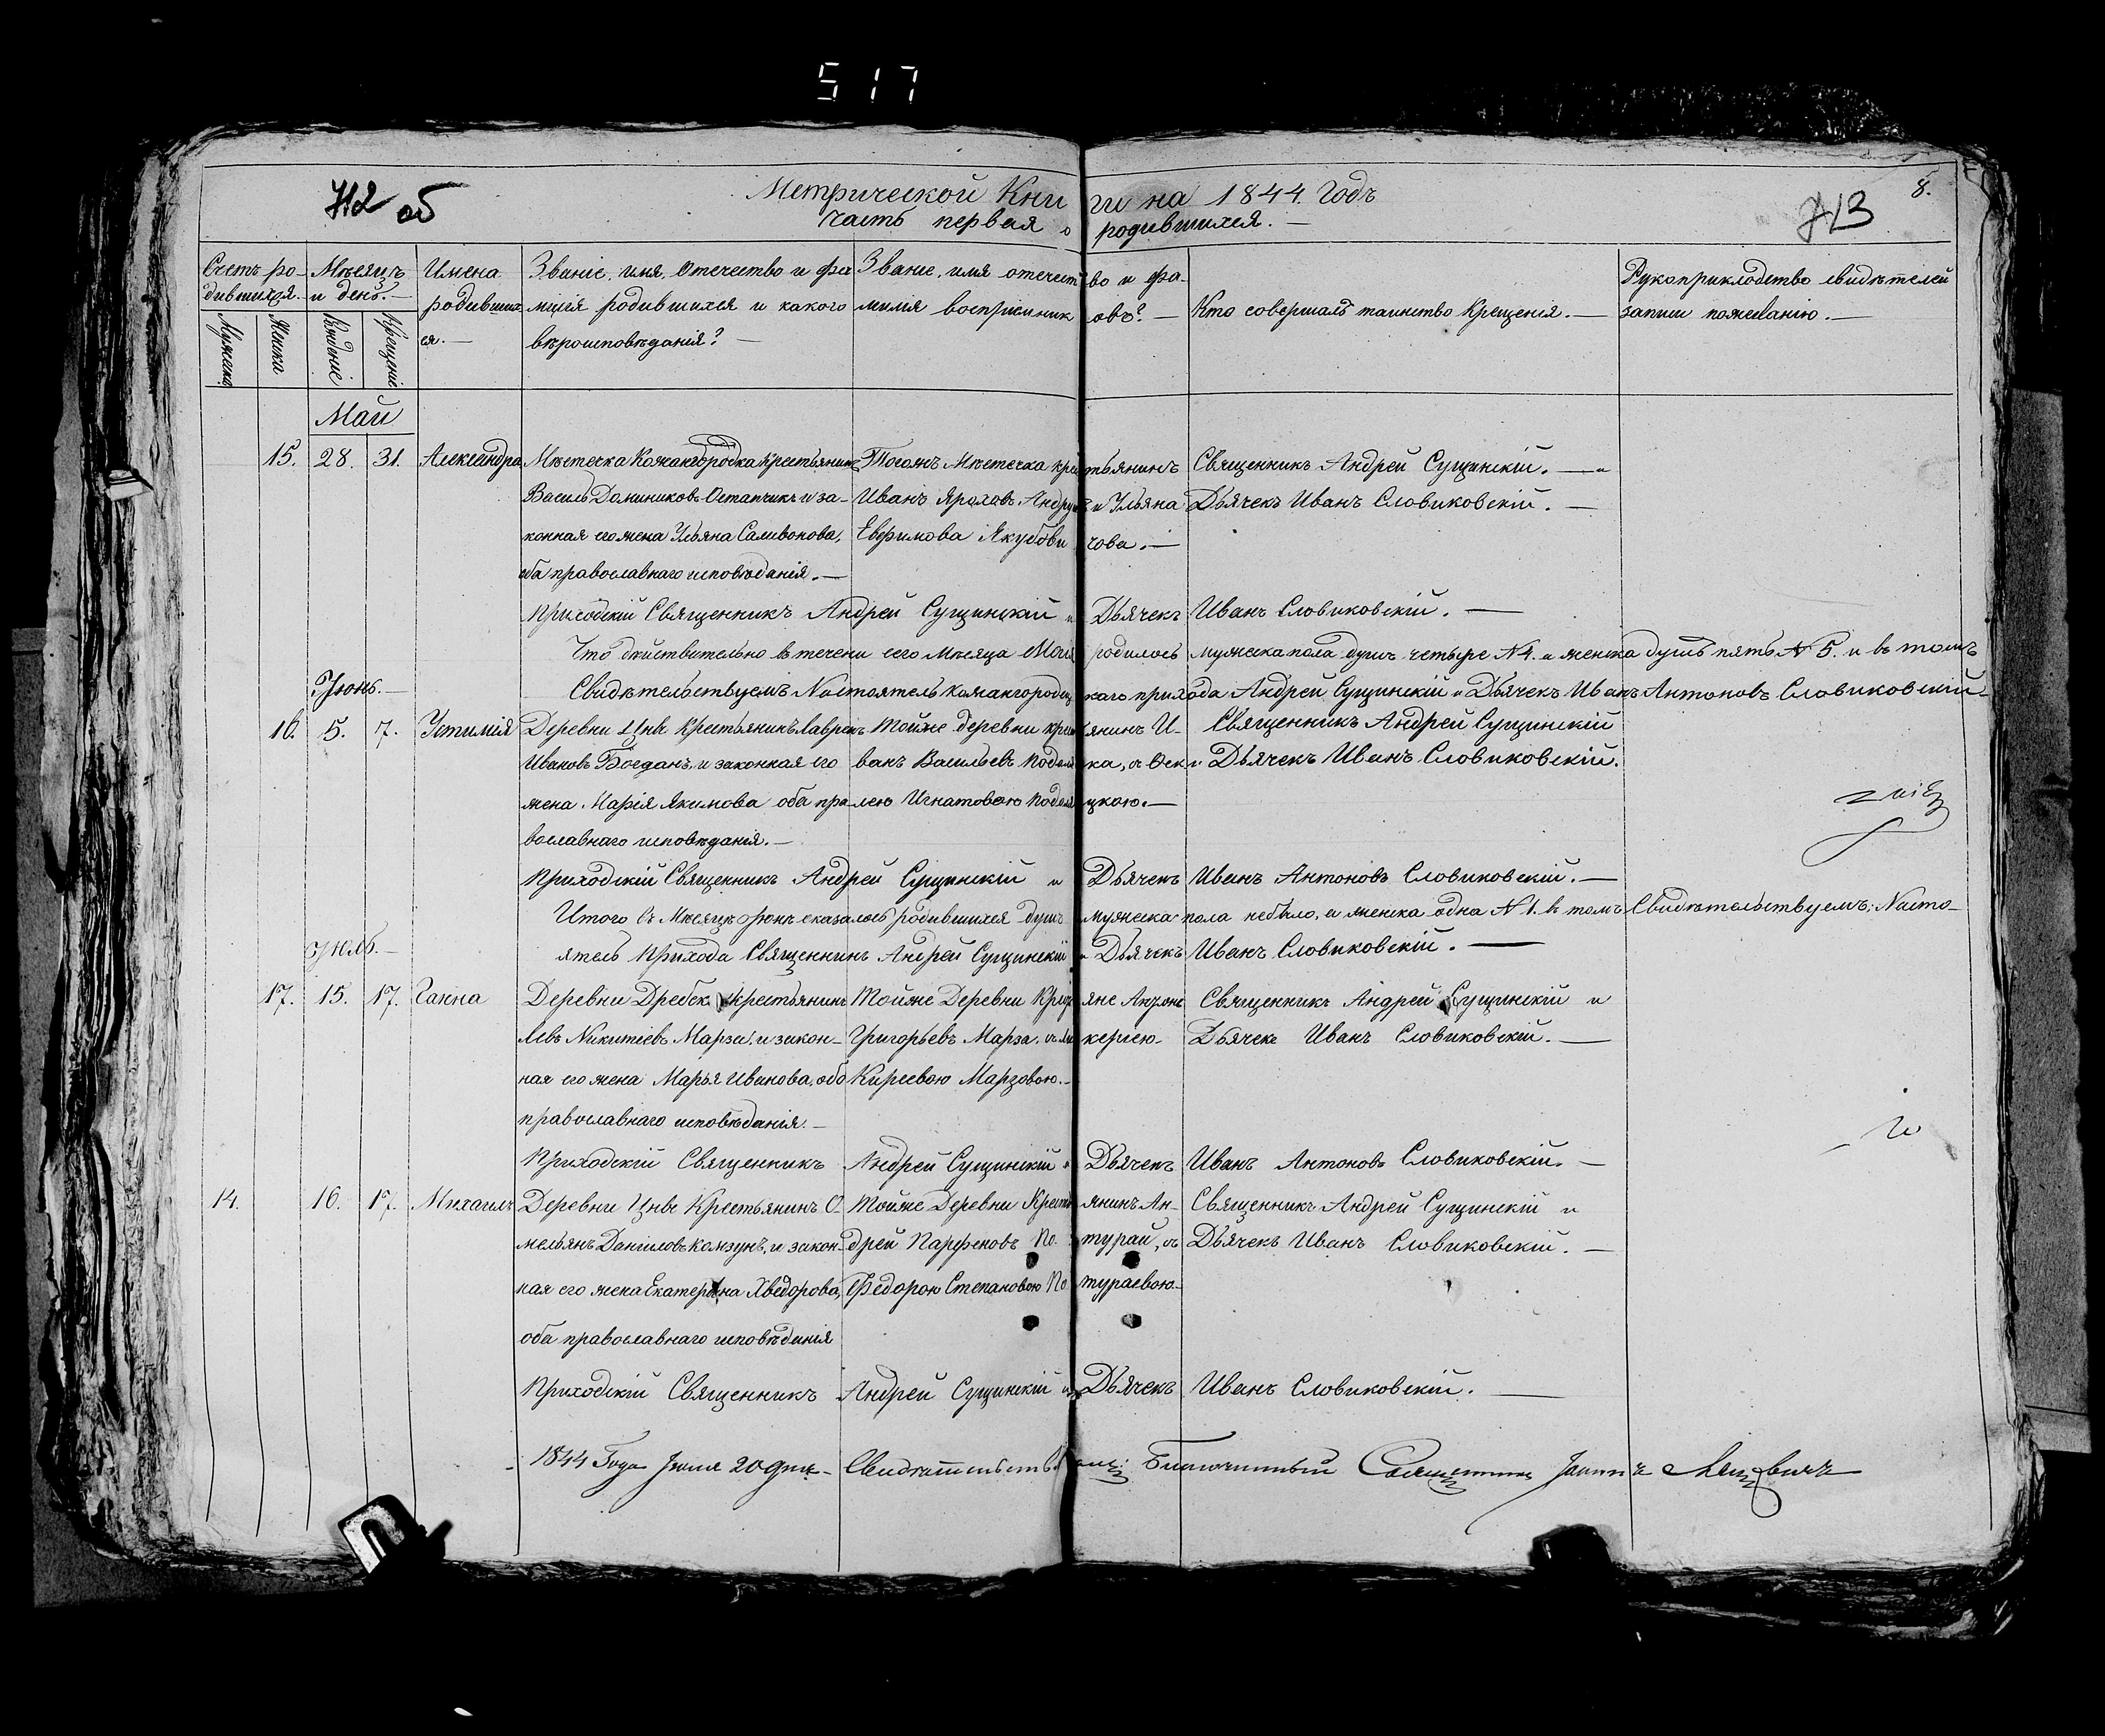 517
712 об
713
8.
Метрической Книги на 1844. Годъ
Часть первая о родившихся. —
Счетъ ро-
дившихся.
Мѣсяцъ
и день. —
Имена
родивших
ся. —
Званіе, имя, Отечество и фа
милія родившихся и какого
вѣроисповѣданія? —
Званіе, имя отечество и фа-
милія воспріемниковъ? —
Кто совершалъ таинство Крещенія. —
Рукоприкладство свидѣтелей
записи пожеланію. —
Мужеска
Женска
Рождение
Крещение
Май
15. 28. 31. Александра
Мѣстечка Кожангородка Крестьянинъ
Василь Доминиковъ Остапчикъ и за-
конная его жена Ульяна Саливонова,
оба православнаго исповѣданія. —
Тогожъ Мѣстечка крестьянинъ
Иванъ Яроховъ и Ульяна
Евфимова Якубовичова. —
Священникъ Андрей Сущинскій. —
Дьячекъ Иванъ Словиковскій. —
Приходскій Священникъ Андрей Сущинскій и Дьячекъ Иванъ Словиковскій. —
Что дѣйствительно въ течени сего Мѣсяца Мая родилось мужеска пола душъ четыре N 4. а женска душъ пять N 5. и въ томъ
Свидѣтельствуемъ Настоятель Кожангородцкаго прихода Андрей Сущинскій и Дьячекъ Иванъ Антоновъ Словиковскій
Іюнь. —
16. 5. 7. Устимія
Деревни Цны Крестьянинъ Лаврен.
Ивановъ Богданъ, и законная его
жена Марія Якимова оба пра
вославнаго исповѣданія. —
Тойже деревни крестьянинъ И-
ванъ Васильевъ
лею Игнатовою
Священникъ Андрей Сущинскій
и Дьячекъ Иванъ Словиковскій.
Приходскій Священникъ Андрей Сущинскій и Дьячекъ Иванъ Антоновъ Словиковскій. —
Итого въ Мѣсяцъ Іюнь оказалось родившихся душъ мужеска пола небыло, а женска одна N 1. въ томъ Свидѣтельствуемъ: Насто-
ятель Прихода Священникъ Андрей Сущинскій и Дьячекъ Иванъ Словиковскій. —
Іюль. —
17. 15. 17. Ганна
Деревни Дребск. крестьянинъ
Левъ Никитіевъ Марза, и закон-
ная его жена Марья Иванова, оба
православнаго исповѣданія. —
Тойже Деревни Антонъ
Григорьевъ Марза,
Киреевою Марзовою. —
Священникъ Андрей Сущинскій и
Дьячекъ Иванъ Словиковскій. —
Приходскій Священникъ Андрей Сущинскій и Дьячекъ Иванъ Антоновъ Словиковскій. —
14. 16. 17. Михаилъ
Деревни Цны Крестьянинъ О-
мельянъ Даніиловъ Комзунъ, и закон-
ная его жена Екатерина Хведорова,
оба православнаго исповѣданія
Тойже Деревни Крестьянинъ Ан-
дрей Парфеновъ Потурай, съ
Федорою Степановою Потураевою. —
Священникъ Андрей Сущинскій и
Дьячекъ Иванъ Словиковскій. —
Приходскій Священникъ Андрей Сущинскій и Дьячекъ Иванъ Словиковскій. —
1844 Года Іюля 20 дня — Благочинный Священникъ Іоаннъ